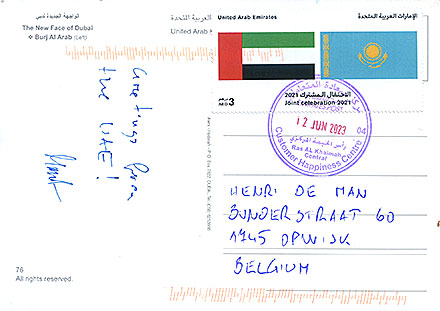 الواجهة الجديدة لدبي
The New Face of Dubai
❖ Burj Al Arab (Left)
Greetings from
the UAE!
76
All rights reserved.
الإمارات العربية المتحدة
United Arab
United Arab Emirates
الإمارات العربية المتحدة
3
الاحتفال المشترك 2021
Joint celebration 2021
12 JUN 2023
04
رأس الخيمة المركزي
Ras AL Khaimah
Central
Customer Happiness Centre
HENRI DE MAN
BUNDERSTRAAT 60
1745 OPWIJK
BELGIUM